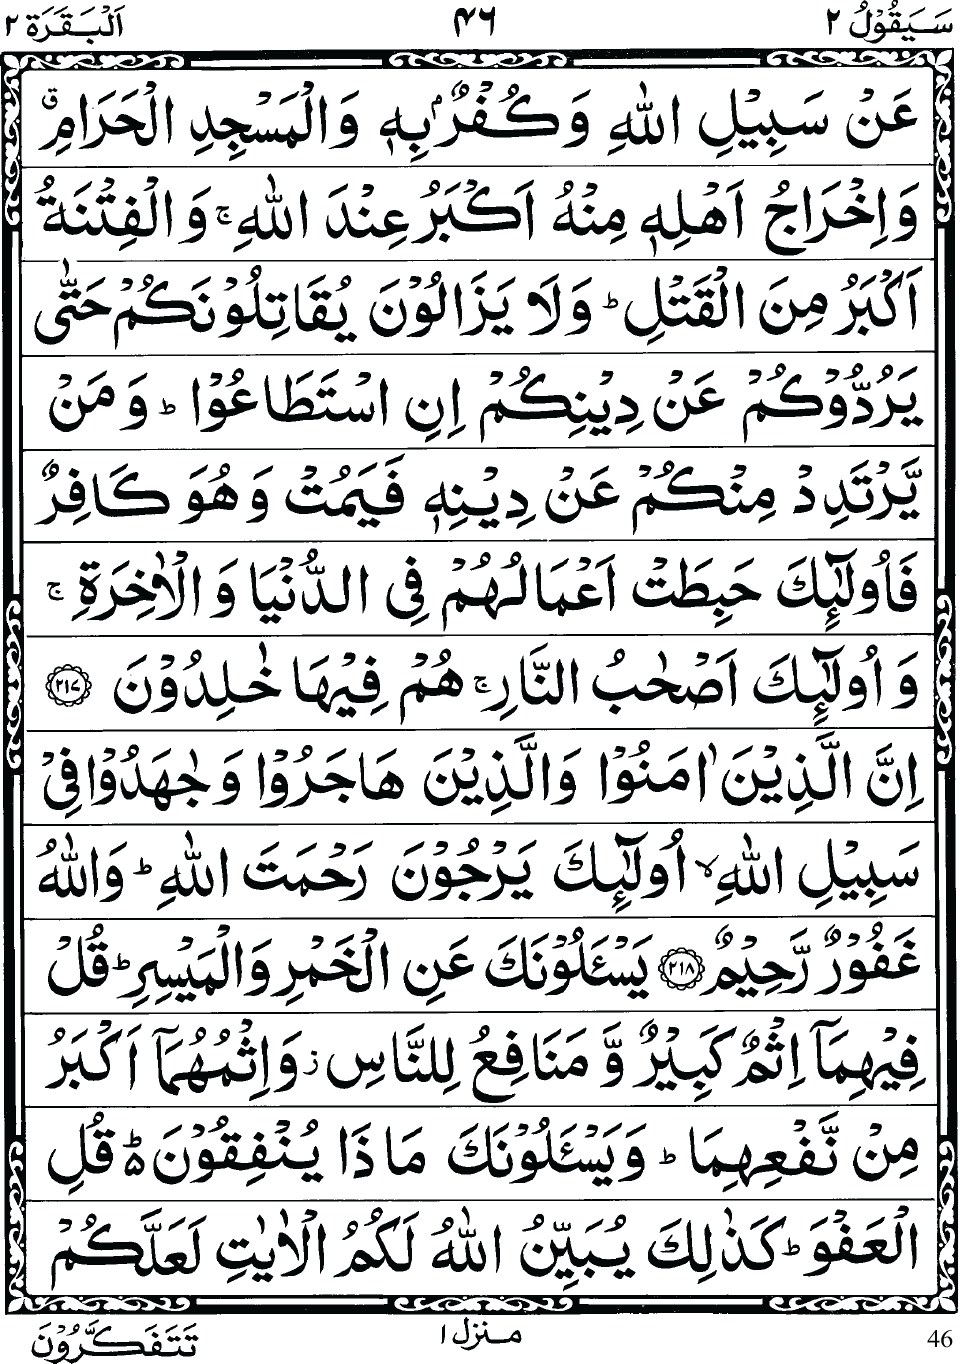 سَيَقُوْلُ ٢ ٤٦ اَلْبَقَرَة ٢
عَنْ سَبِيْلِ اللّٰهِ وَكُفْرٌۢ بِهٖ وَالْمَسْجِدِ الْحَرَامِ ۗ
وَاِخْرَاجُ اَهْلِهٖ مِنْهُ اَكْبَرُ عِنْدَ اللّٰهِ ۚ وَالْفِتْنَةُ
اَكْبَرُ مِنَ الْقَتْلِ ؕ وَلَا يَزَالُوْنَ يُقَاتِلُوْنَكُمْ حَتّٰى
يَرُدُّوْكُمْ عَنْ دِيْنِكُمْ اِنِ اسْتَطَاعُوْا ؕ وَمَنْ
يَّرْتَدِدْ مِنْكُمْ عَنْ دِيْنِهٖ فَيَمُتْ وَهُوَ كَافِرٌ
فَاُولٰٓئِكَ حَبِطَتْ اَعْمَالُهُمْ فِى الدُّنْيَا وَالْاٰخِرَةِ ۚ
وَاُولٰٓئِكَ اَصْحٰبُ النَّارِ ۚ هُمْ فِيْهَا خٰلِدُوْنَ ٢١٧
اِنَّ الَّذِيْنَ اٰمَنُوْا وَالَّذِيْنَ هَاجَرُوْا وَجٰهَدُوْا فِىْ
سَبِيْلِ اللّٰهِ ۙ اُولٰٓئِكَ يَرْجُوْنَ رَحْمَتَ اللّٰهِ ؕ وَاللّٰهُ
غَفُوْرٌ رَّحِيْمٌ ٢١٨ يَسْـَٔلُوْنَكَ عَنِ الْخَمْرِ وَالْمَيْسِرِ ؕ قُلْ
فِيْهِمَآ اِثْمٌ كَبِيْرٌ وَّمَنَافِعُ لِلنَّاسِ ز وَاِثْمُهُمَآ اَكْبَرُ
مِنْ نَّفْعِهِمَا ؕ وَيَسْـَٔلُوْنَكَ مَاذَا يُنْفِقُوْنَ ؕ ۵ قُلِ
الْعَفْوَ ؕ كَذٰلِكَ يُبَيِّنُ اللّٰهُ لَكُمُ الْاٰيٰتِ لَعَلَّكُمْ
تَتَفَكَّرُوْنَ منزل ١ 46